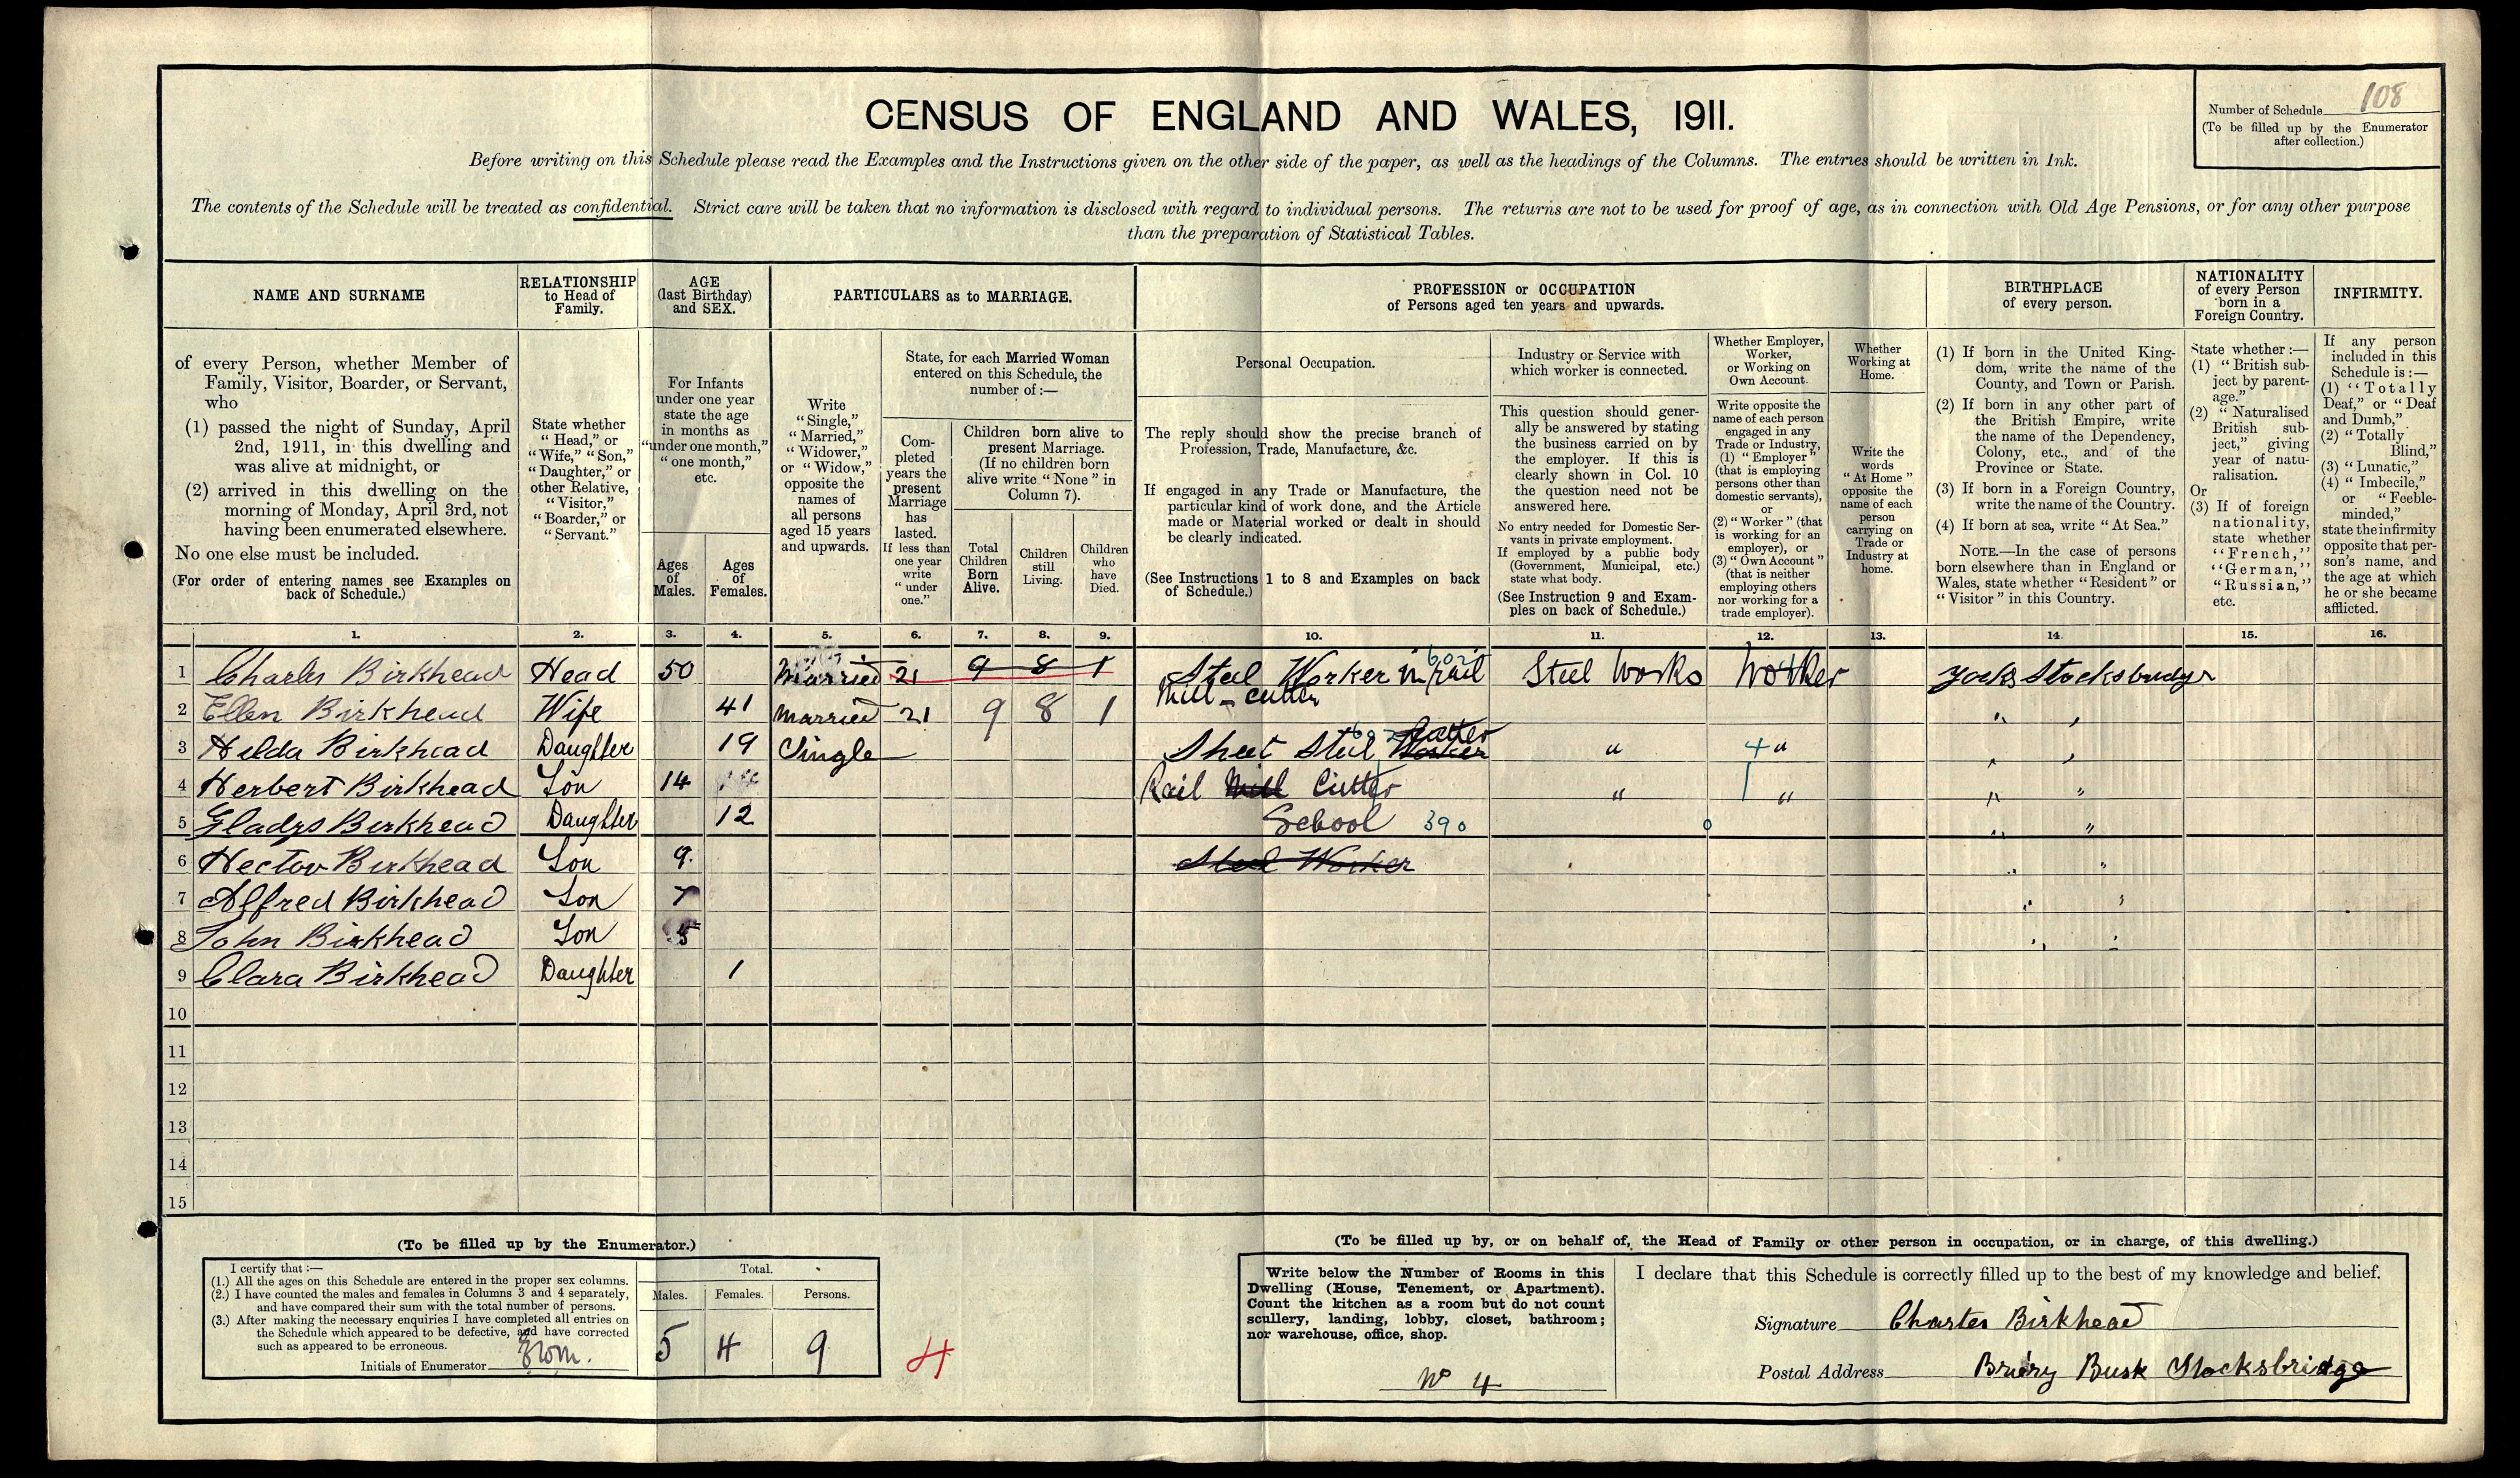 Number of Schedule 108
(To be filled up by the Enumerator
after collection.)
CENSUS OF ENGLAND AND WALES, 1911.
Before writing on this Schedule please read the Examples and the Instructions given on the other side of the paper, as well as the headings of the Columns. The entries should be written in Ink.
The contents of the Schedule will be treated as confidential. Strict care will be taken that no information is disclosed with regard to individual persons. The returns are not to be used for proof of age, as in connection with Old Age Pensions, or for any other purpose
than the preparation of Statistical Tables.
NAME AND SURNAME
of every Person, whether Member of
Family, Visitor, Boarder, or Servant,
who
(1) passed the night of Sunday, April
2nd, 1911, in this dwelling and
was alive at midnight, or
(2) arrived in this dwelling on the
morning of Monday, April 3rd, not
having been enumerated elsewhere.
No one else must be included.
(For order of entering names see Examples on
back of Schedule.)
RELATIONSHIP
to Head of
Family.
State whether
"Head," or
"Wife," "Son,"
"Daughter," or
other Relative,
"Visitor,"
"Boarder," or
"Servant."
AGE
(last Birthday)
and SEX.
For Infants
under one year
state the age
in months as
"under one month,"
"one month,"
etc.
Ages
of
Males.
Ages
of
Females.
PARTICULARS as to MARRIAGE.
Write
"Single,"
"Married,"
"Widower,"
or "Widow,"
opposite the
names of
all persons
aged 15 years
and upwards.
State, for each Married Woman
entered on this Schedule, the
number of:—
Com-
pleted
years the
present
Marriage
has
lasted.
If less than
one year
write
"under
one."
Children born alive to
present Marriage.
(If no children born
alive write "None" in
Column 7).
Total
Children
Born
Alive.
Children
still
Living.
Children
who
have
Died.
PROFESSION or OCCUPATION
of Persons aged ten years and upwards.
Personal Occupation.
The reply should show the precise branch of
Profession, Trade, Manufacture, &c.
If engaged in any Trade or Manufacture, the
particular kind of work done, and the Article
made or Material worked or dealt in should
be clearly indicated.
(See Instructions 1 to 8 and Examples on back
of Schedule.)
Industry or Service with
which worker is connected.
This question should gener-
ally be answered by stating
the business carried on by
the employer. If this is
clearly shown in Col. 10
the question need not be
answered here.
No entry needed for Domestic Ser-
vants in private employment.
If employed by a public body
(Government, Municipal, etc.)
state what body.
(See Instruction 9 and Exam-
ples on back of Schedule.)
Whether Employer,
Worker,
or Working on
Own Account.
Write opposite the
name of each person
engaged in any
Trade or Industry,
(1) "Employer"
(that is employing
persons other than
domestic servants),
or
(2) "Worker" (that
is working for an
employer), or
(3) "Own Account"
(that is neither
employing others
nor working for a
trade employer).
Whether
Working at
Home.
Write the
words
"At Home"
opposite the
name of each
person
carrying on
Trade or
Industry at
home.
BIRTHPLACE
of every person.
(1) If born in the United King-
dom, write the name of the
County, and Town or Parish.
(2) If born in any other part of
the British Empire, write
the name of the Dependency,
Colony, etc., and of the
Province or State.
(3) If born in a Foreign Country,
write the name of the Country.
(4) If born at sea, write "At Sea."
NOTE.—In the case of persons
born elsewhere than in England or
Wales, state whether "Resident" or
"Visitor" in this Country.
NATIONALITY
of every Person
born in a
Foreign Country.
State whether:—
(1) "British sub-
ject by parent-
age."
(2) "Naturalised
British sub-
ject," giving
year of natu-
ralisation.
Or
(3) If of foreign
nationality,
state whether
"French,"
"German,"
"Russian,"
etc.
INFIRMITY.
If any person
included in this
Schedule is:—
(1) "Totally
Deaf," or "Deaf
and Dumb,"
(2) "Totally
Blind,"
(3) "Lunatic,"
(4) "Imbecile,"
or "Feeble-
minded,"
state the infirmity
opposite that per-
son's name, and
the age at which
he or she became
afflicted.
1. 2. 3. 4. 5. 6. 7. 8. 9. 10. 11. 12. 13. 14. 15. 16.
1 Charles Birkhead Head 50 Married 21 9 8 1 Steel Worker in rail Steel Works Worker Yorks Stocksbridge
Mill - cutter
2 Ellen Birkhead Wife 41 Married 21 9 8 1 " "
3 Hilda Birkhead Daughter 19 Single Sheet Steel Worker Cutter " 4 " " "
4 Herbert Birkhead Son 14 Rail Mill Cutter " " " "
5 Gladys Birkhead Daughter 12 School 390 0 " "
6 Hector Birkhead Son 9 Steel Worker " "
7 Alfred Birkhead Son 7 " "
8 John Birkhead Son 5 " "
9 Clara Birkhead Daughter 1
10
11
12
13
14
15
(To be filled up by the Enumerator.)
I certify that:—
(1.) All the ages on this Schedule are entered in the proper sex columns.
(2.) I have counted the males and females in Columns 3 and 4 separately,
and have compared their sum with the total number of persons.
(3.) After making the necessary enquiries I have completed all entries on
the Schedule which appeared to be defective, and have corrected
such as appeared to be erroneous.
Initials of Enumerator
Total.
Males. Females. Persons.
5 4 9
4
(To be filled up by, or on behalf of, the Head of Family or other person in occupation, or in charge, of this dwelling.)
Write below the Number of Rooms in this
Dwelling (House, Tenement, or Apartment).
Count the kitchen as a room but do not count
scullery, landing, lobby, closet, bathroom;
nor warehouse, office, shop.
No 4
I declare that this Schedule is correctly filled up to the best of my knowledge and belief.
Signature Charles Birkhead
Postal Address Briery Busk Stocksbridge